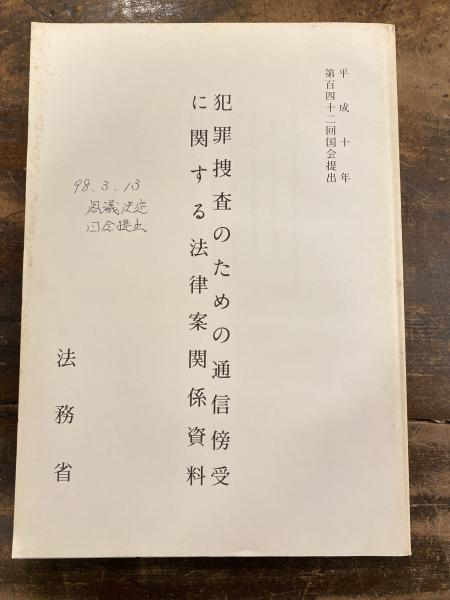 平成十年
第百四十二回国会提出
犯罪捜査のための通信傍受
に関する法律案関係資料
98.3.13
閣議決定
国会提出
法務省